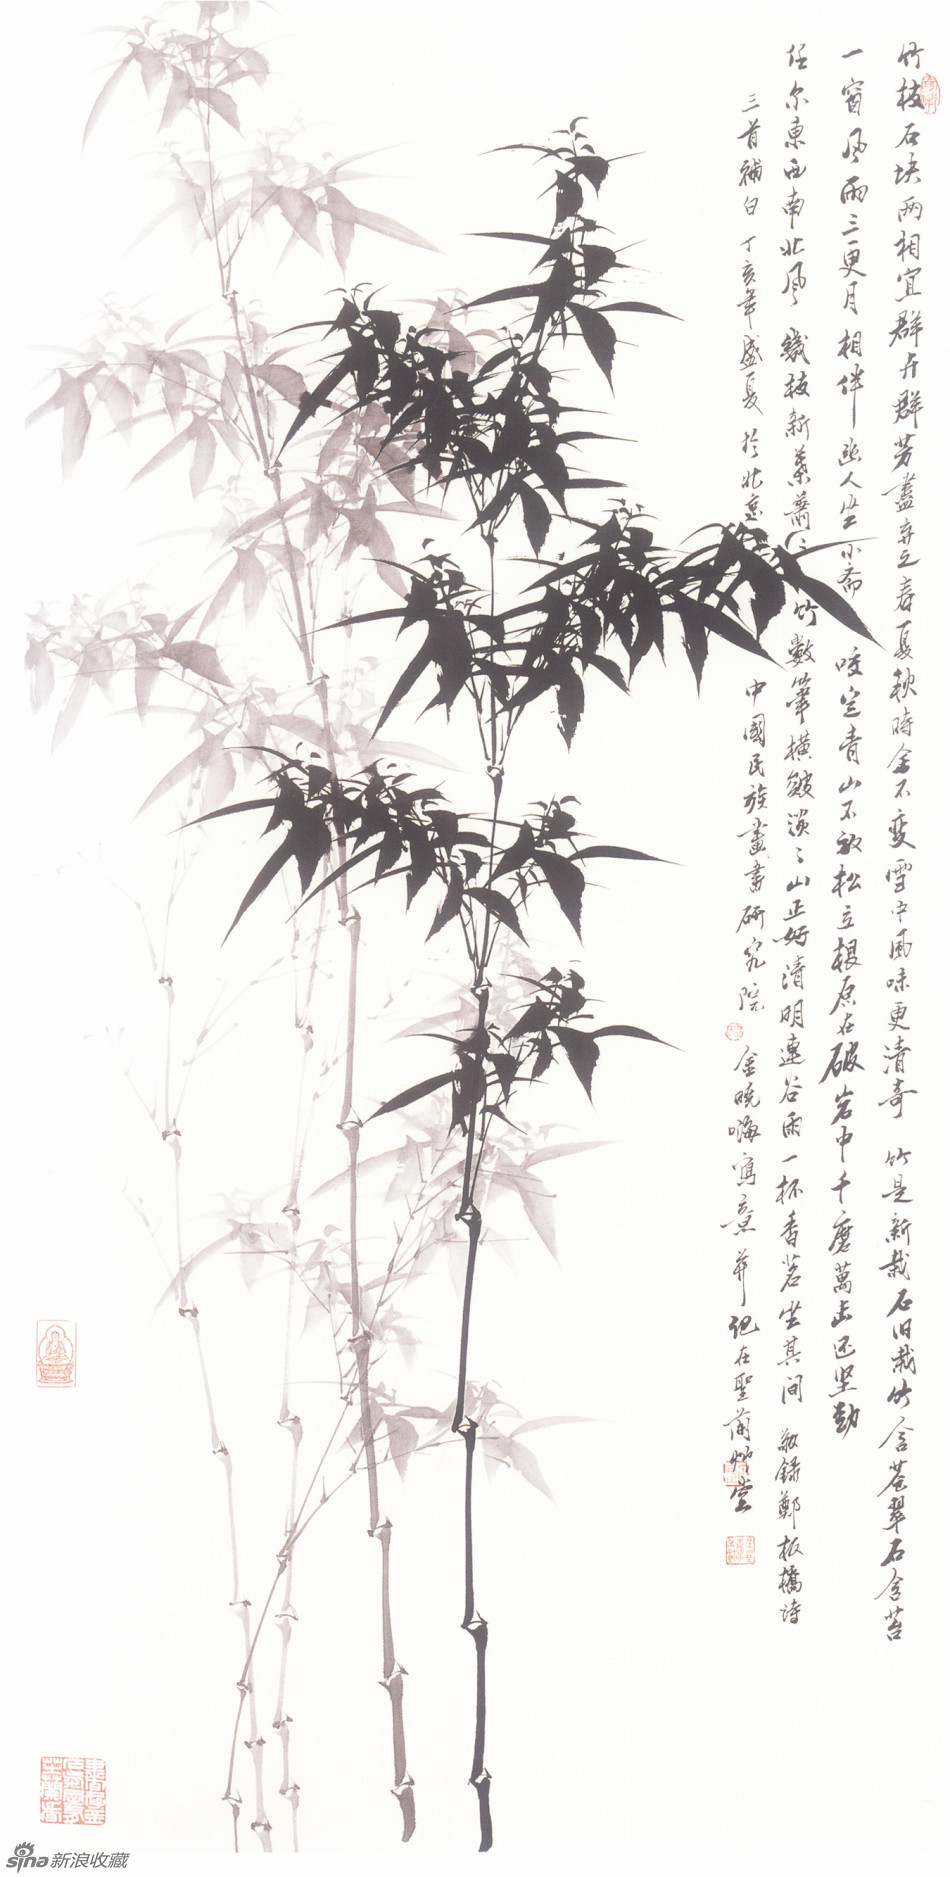 竹枝石块两相宜群卉群芳盡弃之春夏秋時全不变雪中風味更清奇 竹是新栽石旧栽竹含苍翠石含苔
一窗風雨三更月相伴幽人坐小斋 咬定青山不放松立根原在破岩中千磨萬击还坚劲
任尔東西南北風 纖枝新葉蕭々竹數筆橫皴淡々山正好清明連谷雨一杯香茗坐其间 敬録鄭板橋诗
三首補白 丁亥年盛夏於北京 中國民族畫書研究院 金曉海寫意并记在聖蘭堂
sina新浪收藏